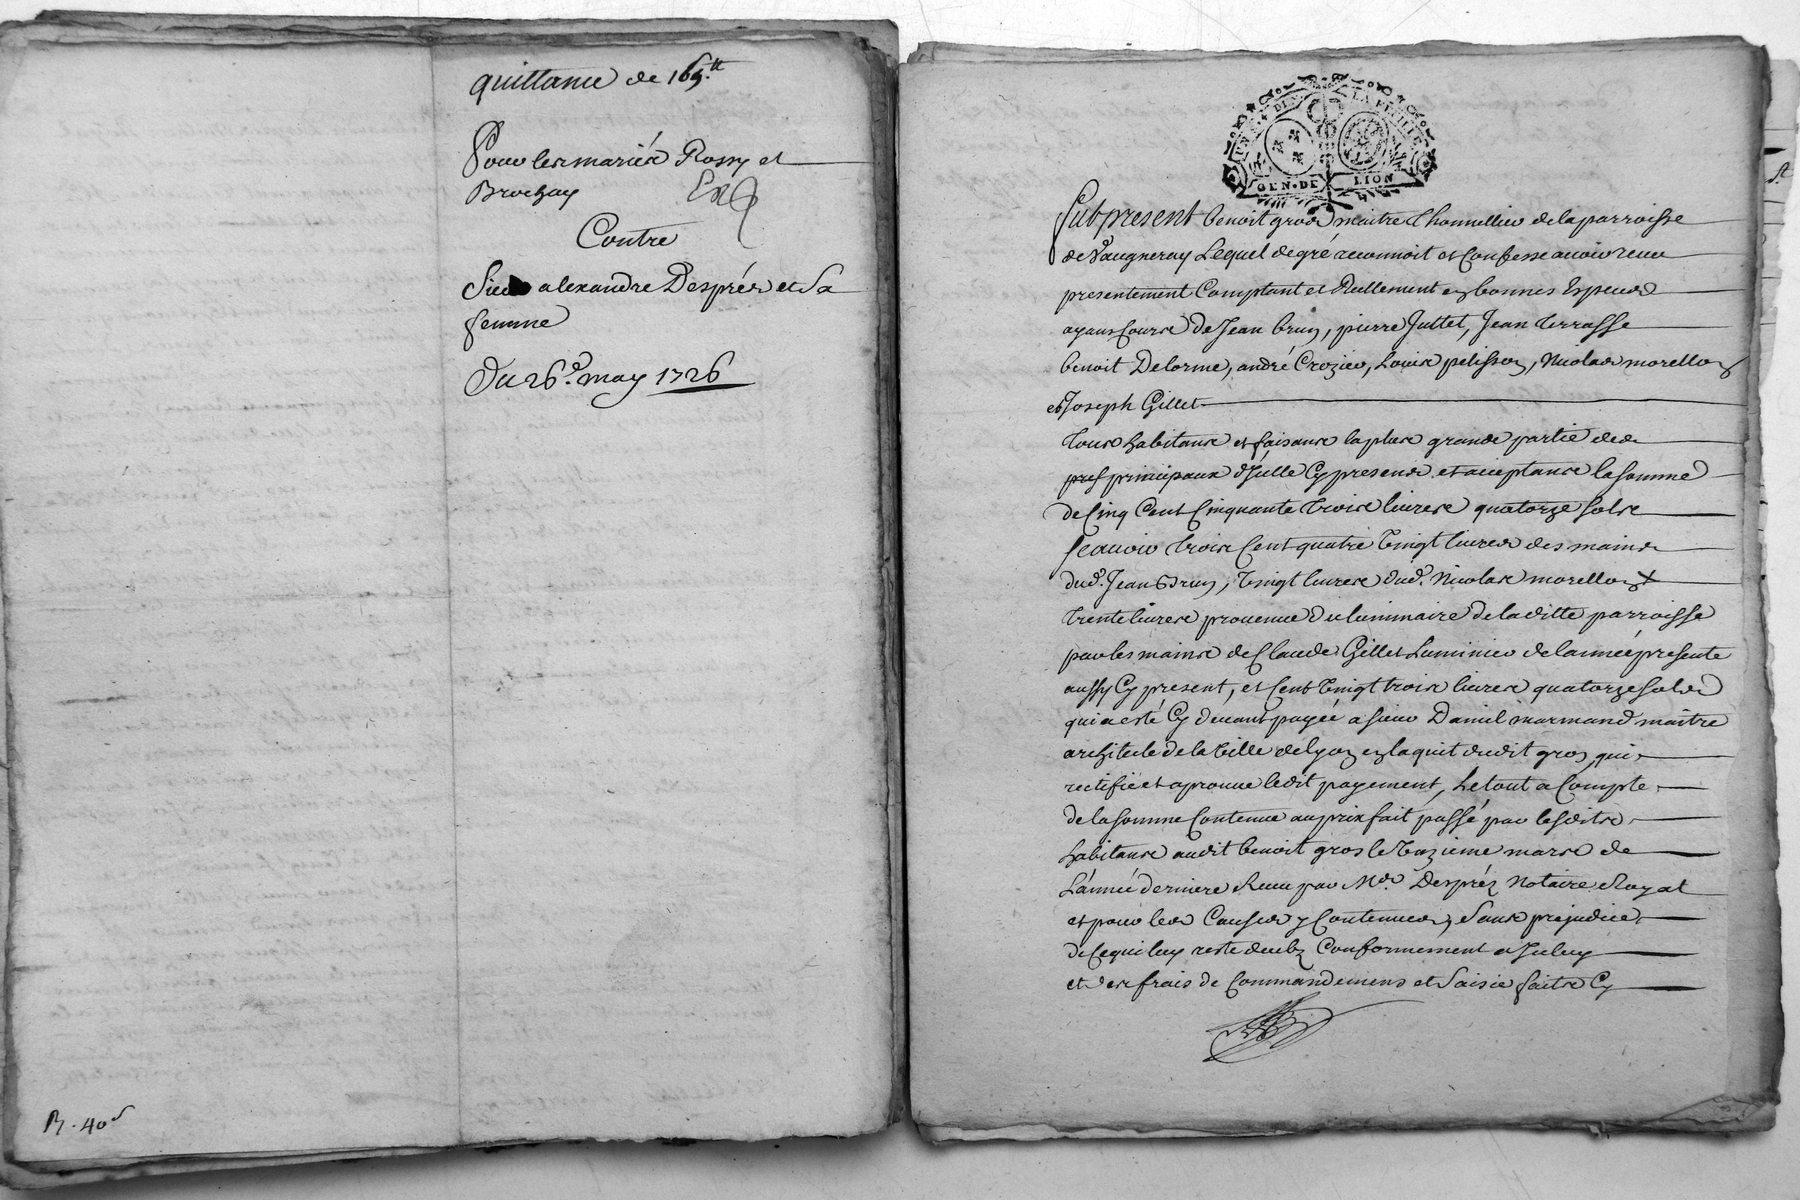 quittance de 165.tt
Pour les mariés Rossy et
Brochay
Contre
Sieur alexandre Desprès et Sa
femme
Du 26.e may 1726
R. 40s
GEN. DE LION
Fut present benoit gros maitre Thonnellier de la parroisse
de Vaugneray Lequel de gré reconnoit et Confesse avoir receu
presentement Comptant et Reellement en bonnes Especes
ayans Cours de Jean brun, pierre Juttet, Jean terrasse
benoit Delorme, andré Crozier, Louis pelisson, Nicolas morellon
et Joseph Gillet
tous habitans et faisans la plus grande partie des
principaux d'Julle Cy presens et acceptans la somme
de Cinq Cent Cinquante trois livres quatorze sols
sçavoir trois Cent quatre vingt livres des mains
dud. Jean Brun, vingt livres dud. Nicolas morellon
trente livres provenue du luminaire de laditte parroisse
par les mains de Claude Gillet Luminier de lannée presente
aussy Cy present, et Cent vingt trois livres quatorze sols
qui a esté Cy devant payée a sieur Daniel marmand maitre
architecte de la ville de lyon en laquit dudit gros, qui
rectifie et aprouve ledit payement, Le tout a Compte
de la somme Contenue au prix fait passé par lesdits
habitans audit benoit gros le unzieme mars de
L'année derniere Receu par Me. Despréz Notaire Royal
et pour les Causes y Contenues, sans prejudice
de Ce qui luy reste deub Conformement a Iceluy
et des frais de Commandemens et Saisie faits Cy